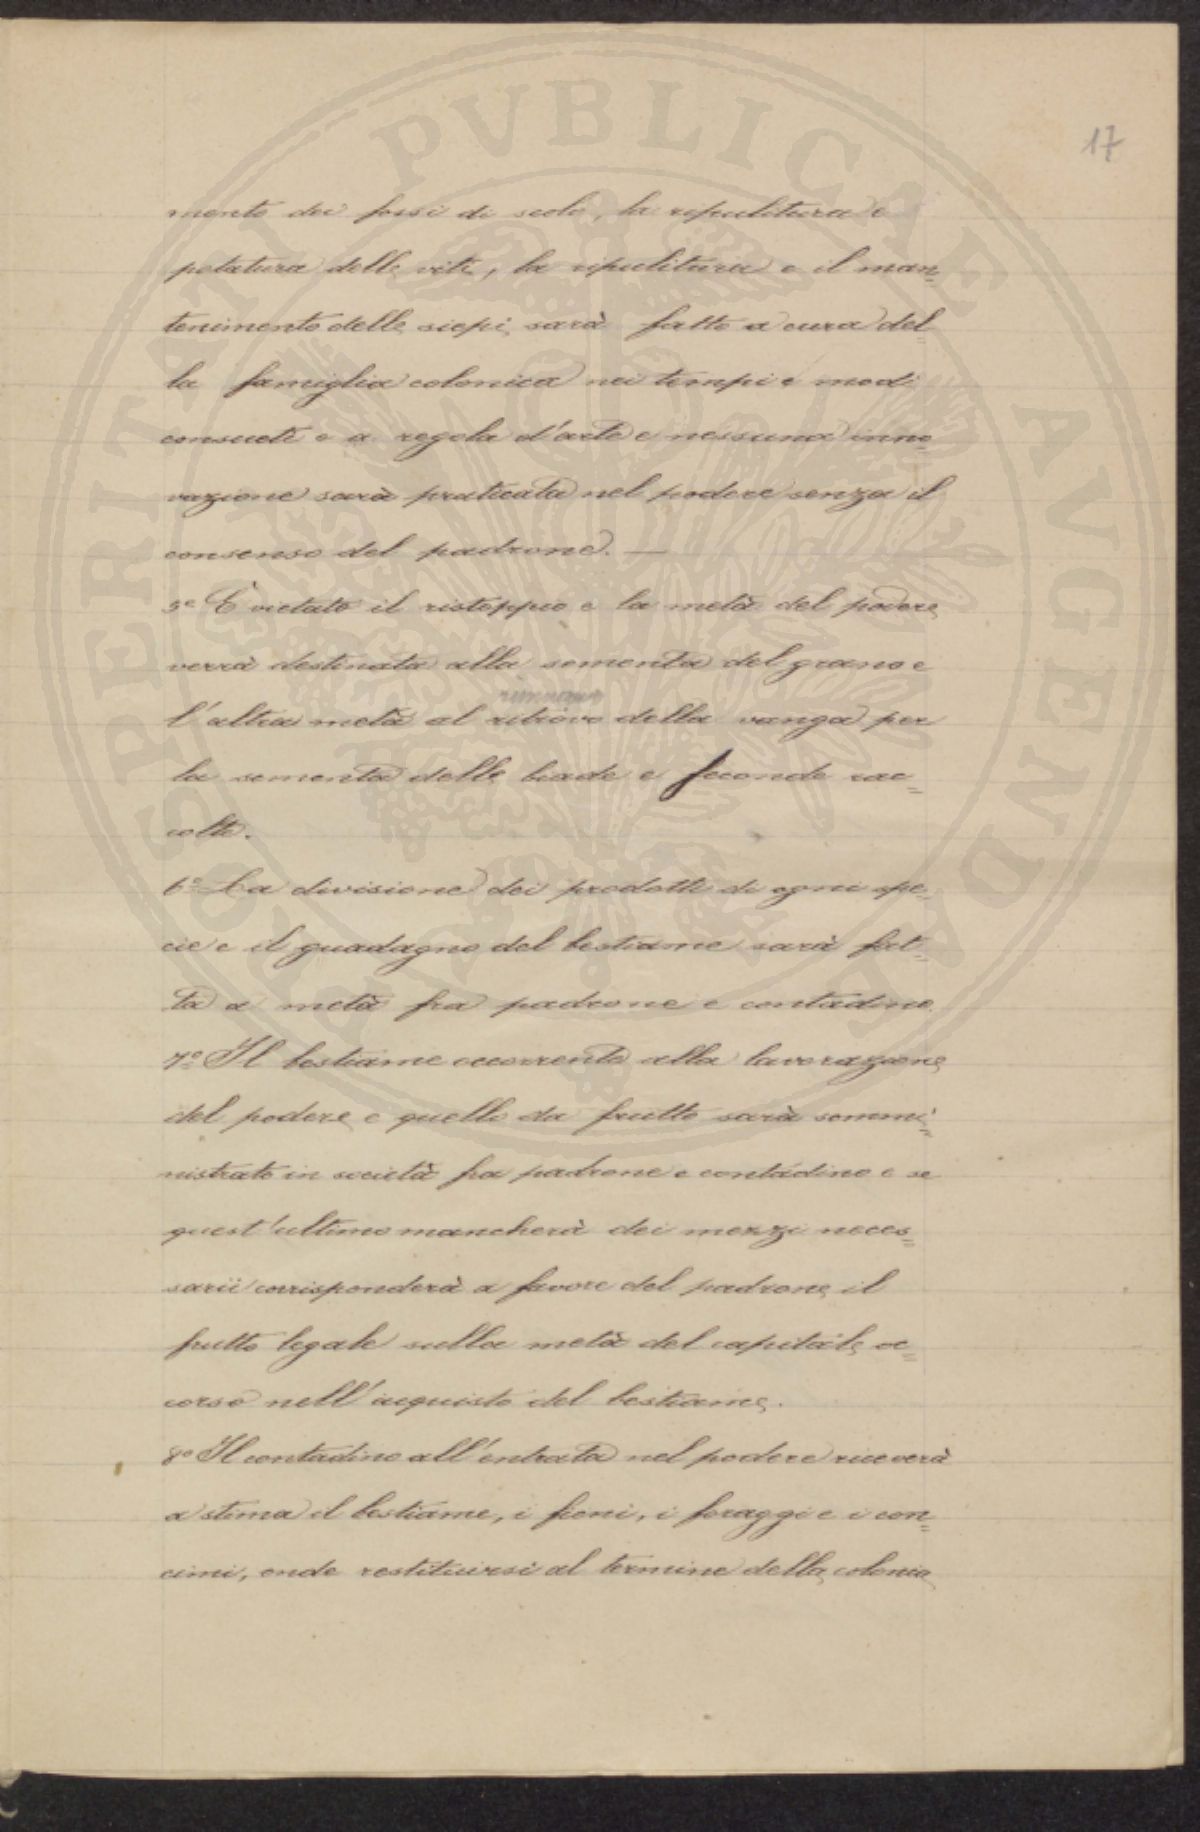 17
mento dei fossi di scolo, la ripulitura e
potatura delle viti, la ripulitura e il man=
tenimento delle siepi, sarà fatto a cura del=
la famiglia colonica nei tempi e modi
consueti e a regola d'arte e nessuna inno=
vazione sarà praticata nel podere senza il
consenso del padrone. —
5º È vietato il ristoppio e la metà del podere
verrà destinata alla sementa del grano e
rinnovo
l'altra metà al ritrovo della vanga per
la sementa delle biade e seconde rac=
colte.
6º La divisione dei prodotti di ogni spe=
cie e il guadagno del bestiame sarà fat=
ta a metà fra padrone e contadino.
7º Il bestiame occorrente alla lavorazione
del podere e quello da frutto sarà sommi=
nistrato in società fra padrone e contadino e se
quest'ultimo mancherà dei mezzi neces=
sarii corrisponderà a favore del padrone il
frutto legale sulla metà del capitale oc=
corso nell'acquisto del bestiame.
8º Il contadino all'entrata nel podere riceverà
a stima il bestiame, i fieni, i foraggi e i con=
cimi, onde restituirsi al termine della colonia
PROSPERITATI PVBLICAE AVGENDAE